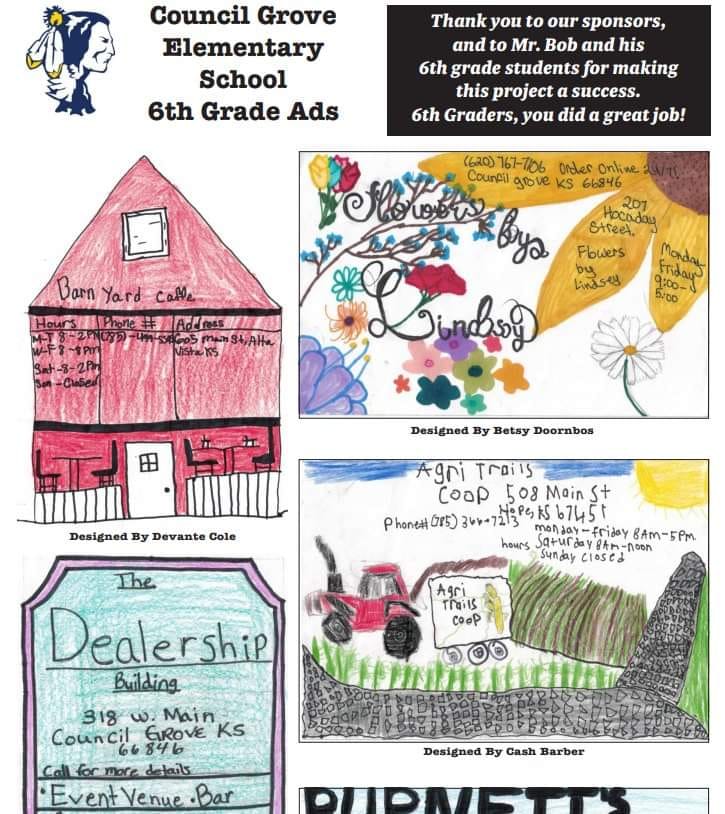 Council Grove
Elementary
School
6th Grade Ads
Thank you to our sponsors,
and to Mr. Bob and his
6th grade students for making
this project a success.
6th Graders, you did a great job!
Barn Yard caffe
Hours Phone # Address
M-T 8-2PM (785)-499- 605 main St, Alta
W-F 8-8pm Vista KS
Sat-8-2pm
Sun-Closed
Designed By Devante Cole
(620) 767-7106 Order Online 24/7!
Council grove KS 66846
207
Hocaday
Street.
Flowers
by
Lindsey
Monday
Friday
9:00-
5:00
Flowers
by
Lindsey
Designed By Betsy Doornbos
Agri Trails
Coop 508 Main St
Hope, KS 67451
Phone# (785) 366-7213 monday-friday 8Am-5Pm
hours Saturday 8Am-noon
Sunday closed
Agri
Trails
coop
Designed By Cash Barber
The
Dealership
Building
318 w. Main
Council GROVE KS
66846
Call for more details
•Event Venue •Bar
BURNETT'S